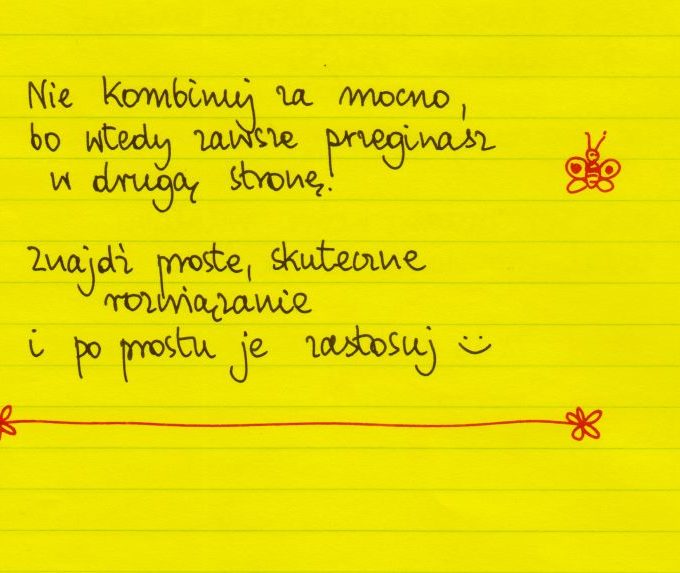 Nie kombinuj za mocno,
bo wtedy zawsze przeginasz
w drugą stronę!
Znajdź proste, skuteczne
rozwiązanie
i po prostu je zastosuj :)